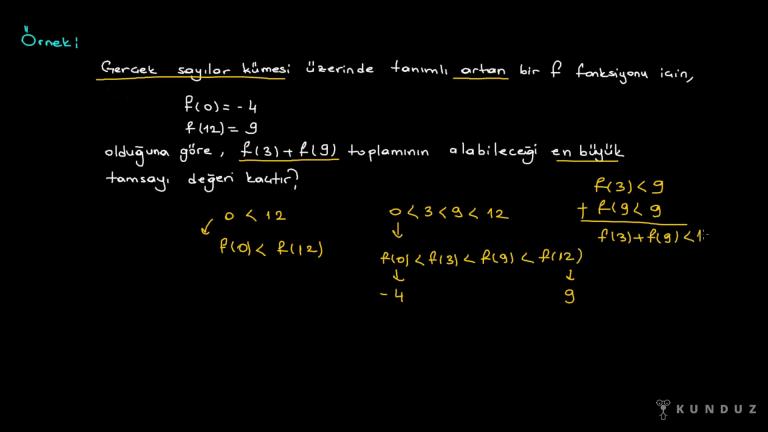 Örnek:
Gercek sayılar kümesi üzerinde tanımlı artan bir f fonksiyonu icin,
f(0) = -4
f(12) = 9
olduğuna göre, f(3) + f(9) toplamının alabileceği en büyük
tamsayı değeri kactır?
0 < 12
f(0) < f(12)
0 < 3 < 9 < 12
f(0) < f(3) < f(9) < f(12)
-4 9
f(3) < 9
+ f(9 < 9
f(3) + f(9) < 1
KUNDUZ